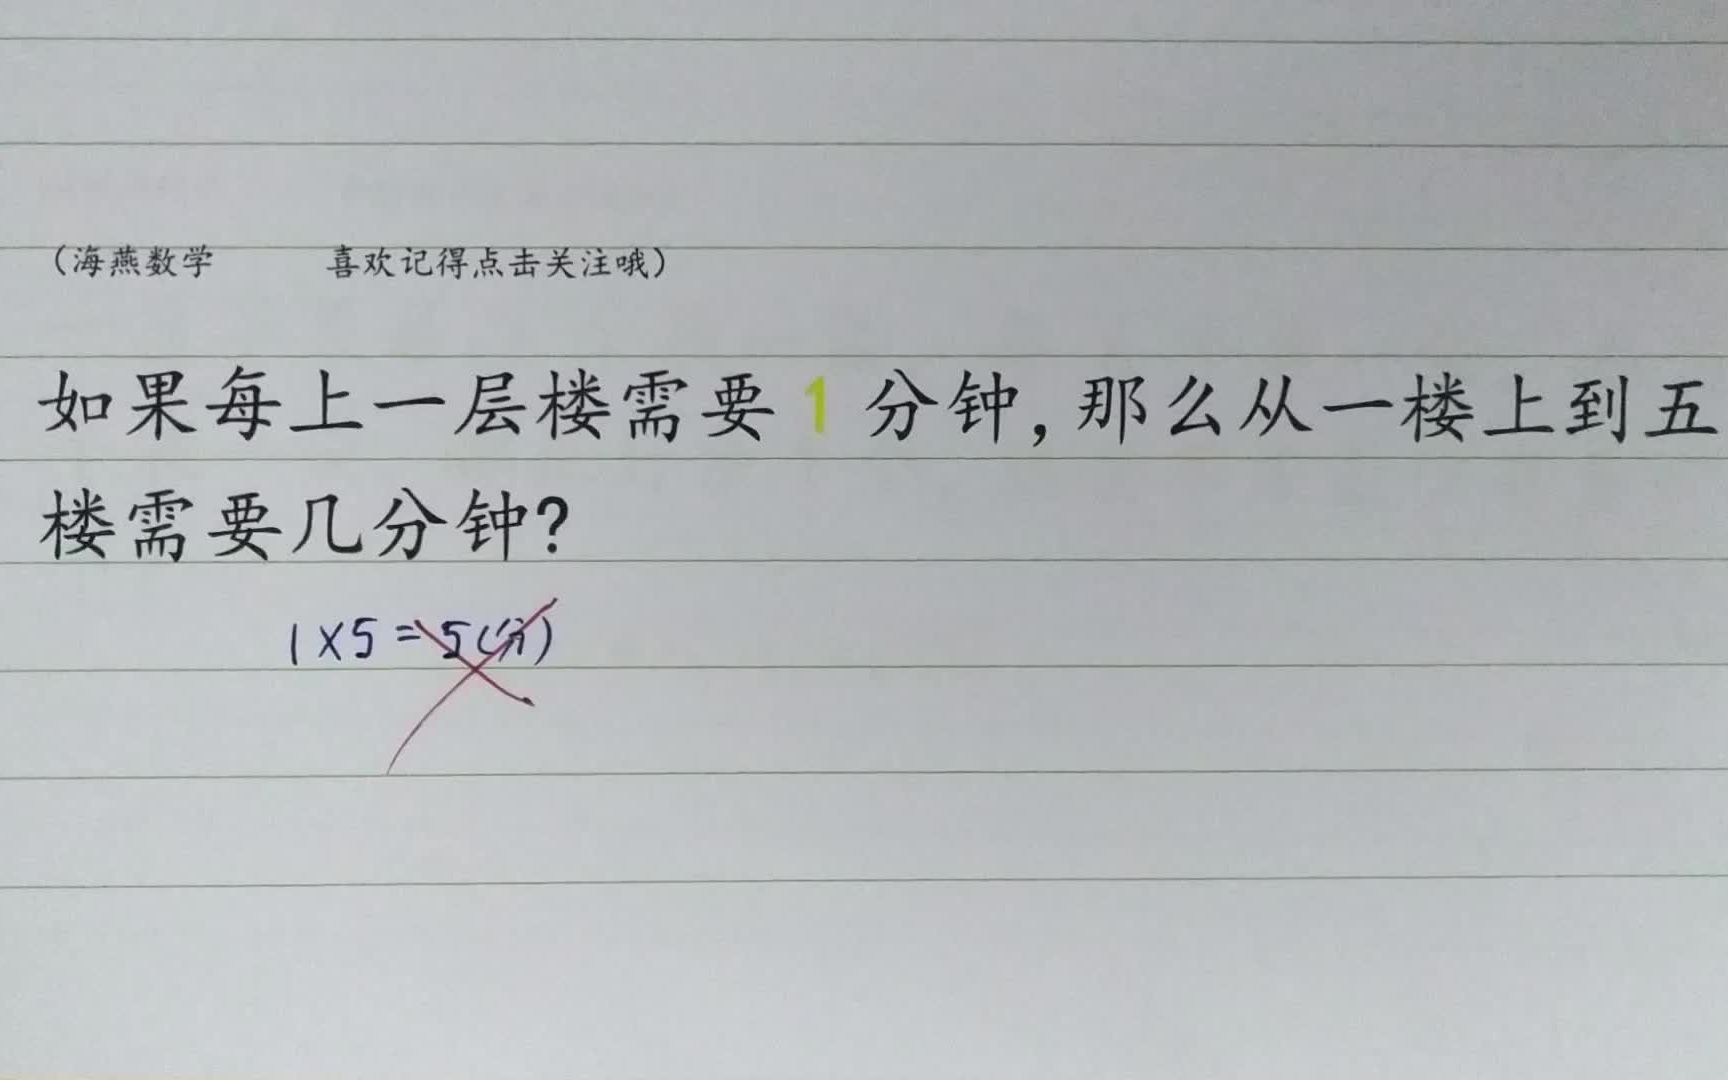 （海燕数学 喜欢记得点击关注哦）
如果每上一层楼需要1分钟，那么从一楼上到五
楼需要几分钟？
1×5=5(分)